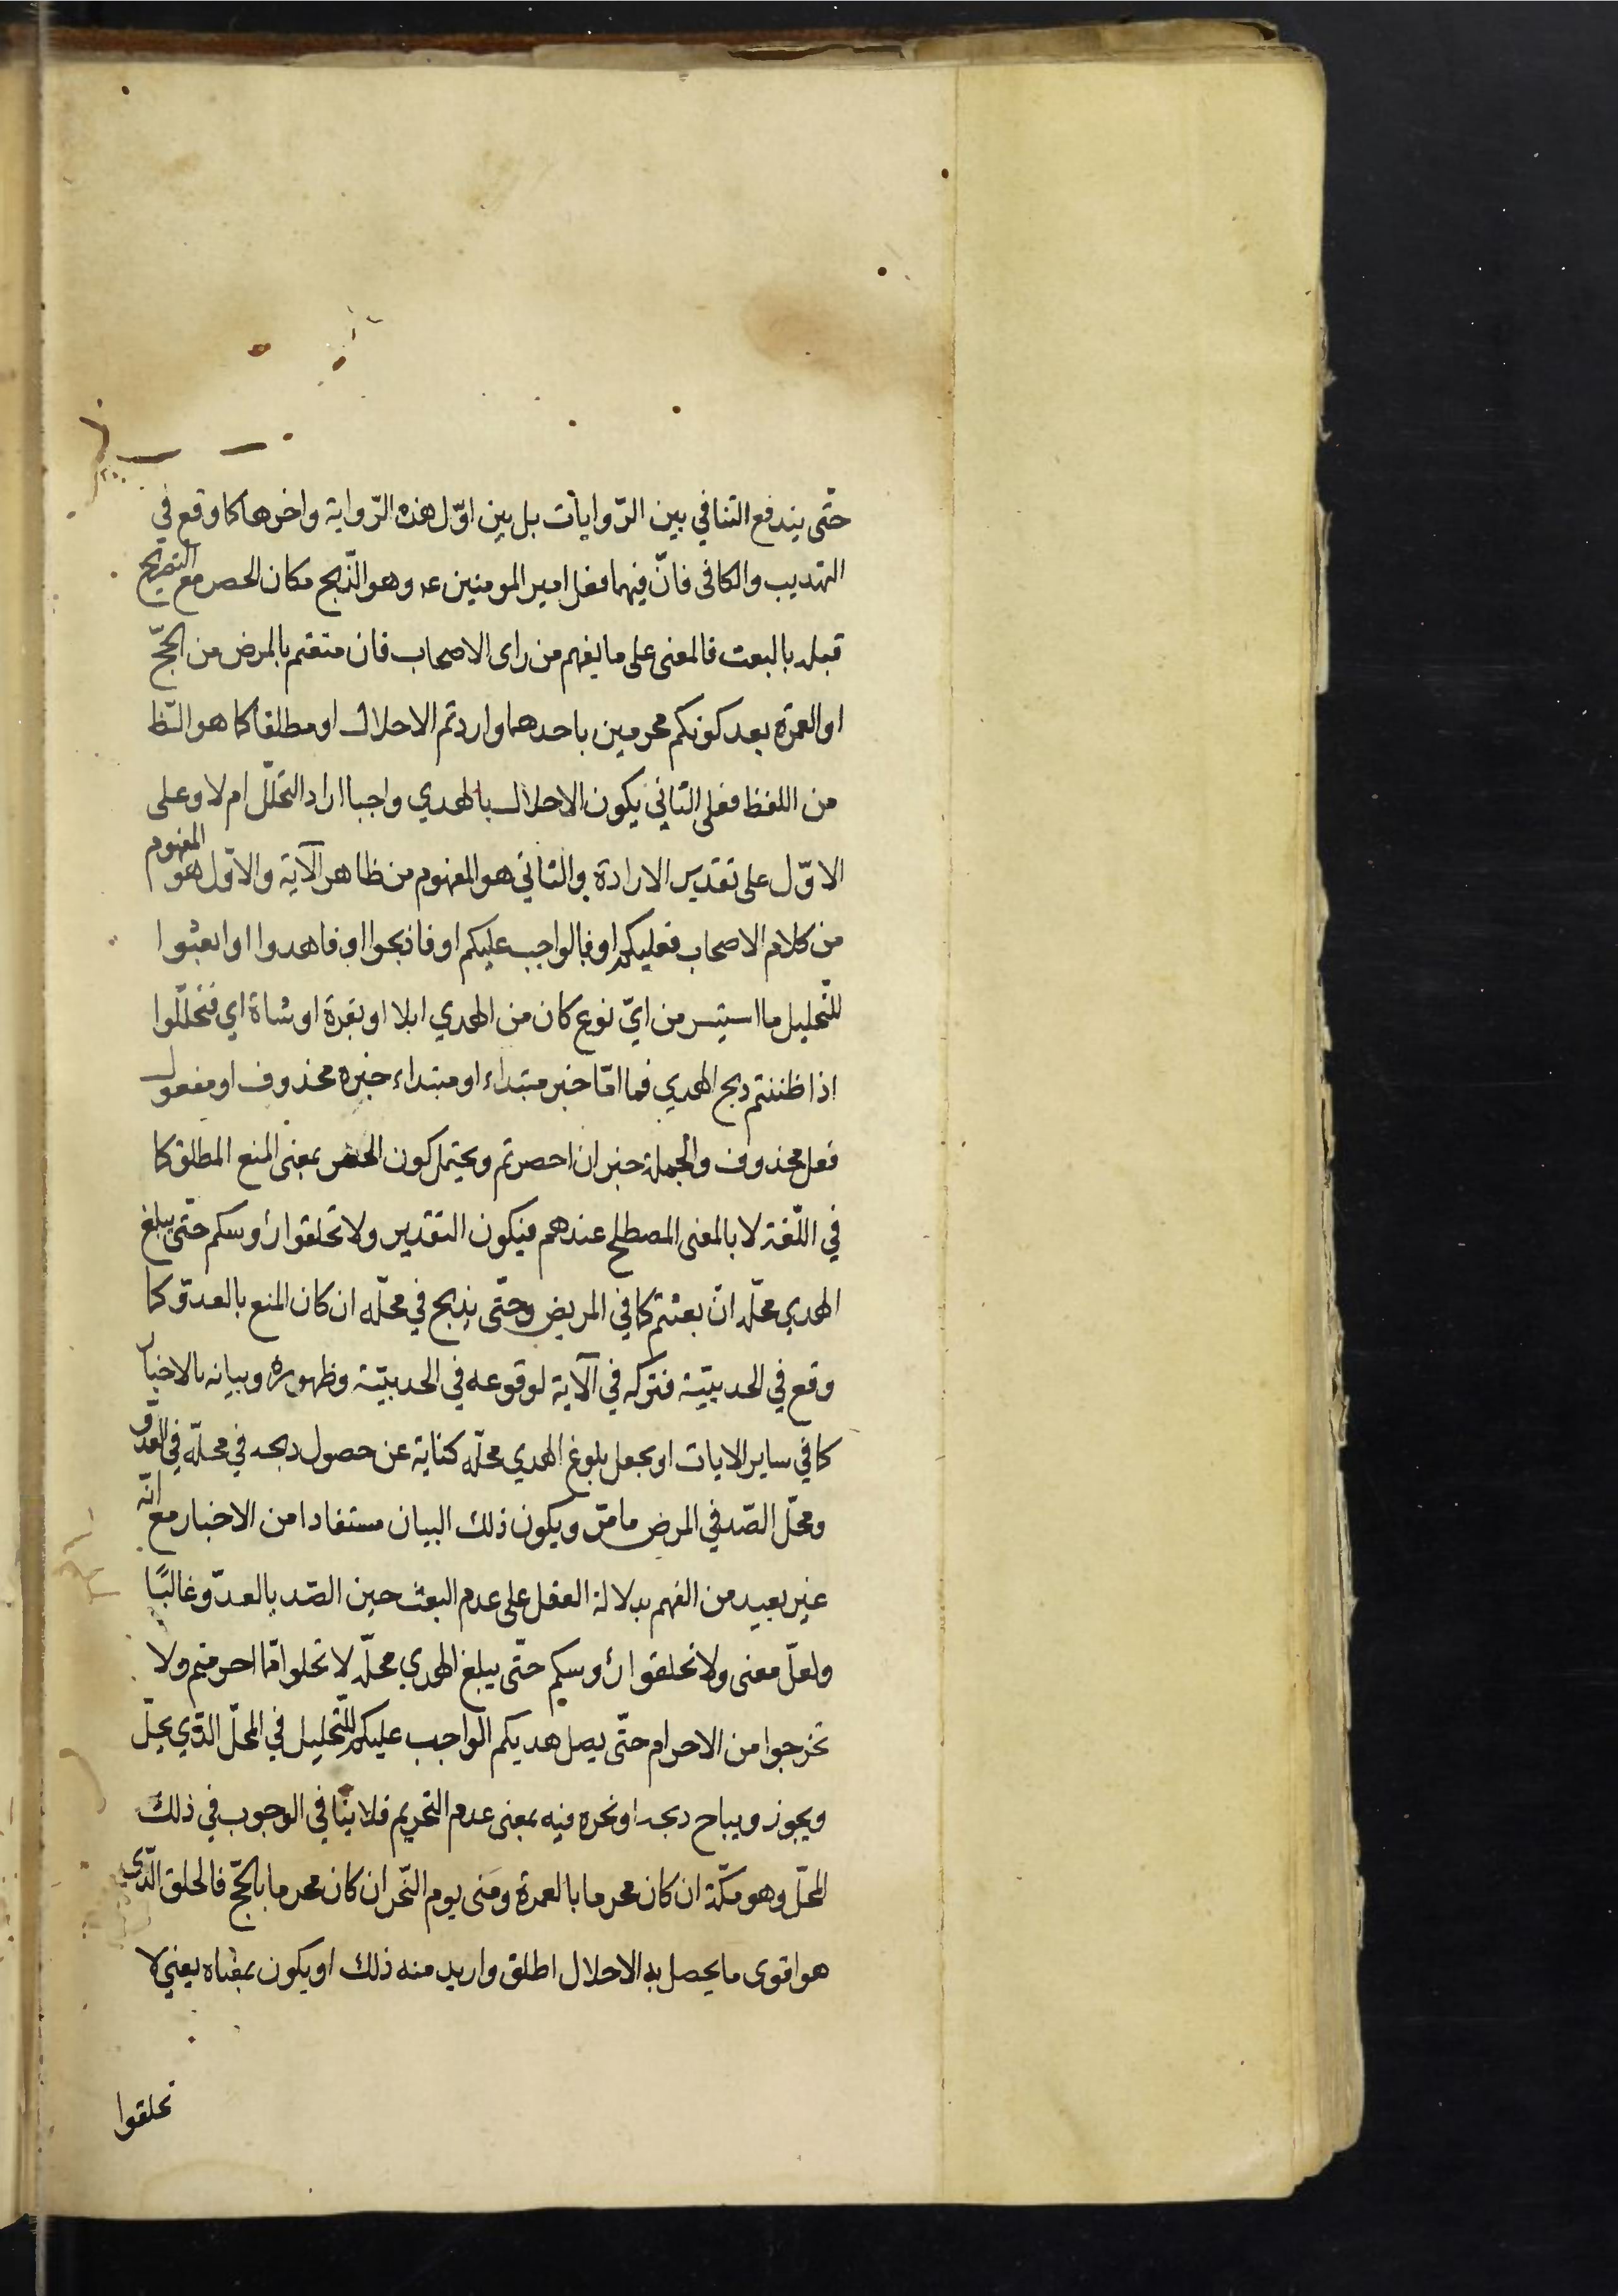 حتّى يندفع التنافي بين الرّوايات بل بين اوّل هذه الرّواية واخرها كما وقع في
التهذيب والكافى فانّ فيهما فعل امير المومنين عه وهو الذّبح مكان الحصر مع التصريح
قبله بالبعث فالمعنى على ما يفهم من راى الاصحاب فان منعتم بالمرض من الحجّ
او العمرة بعد كونكم محرمين باحدهما واردتم الاحلال او مطلقا كما هو الظّ
من اللفظ فعلى الثاني يكون الاحلال بالهدي واجبا اراد التحلّل ام لا وعلى
الاوّل على تقدير الارادة والثاني هو المفهوم من ظاهر الآية والاوّل هو المفهوم
من كلام الاصحاب فعليكم او فالواجب عليكم او فاذبحوا او فاهدوا او ابعثوا
للتّحليل ما استيسر من ايّ نوع كان من الهدي ابلا او بقرة او شاة اي فتحلّلوا
اذا ظننتم دبح الهدي فما امّا خبر مبتداء او مبتداء خبره محذوف او مفعول
فعل محذوف والجملة خبر ان احصرتم ويحتمل كون الحصر بمعنى المنع المطلق كما
في اللّغة لا بالمعنى المصطلح عندهم فيكون التقدير ولا تحلقوا رؤوسكم حتّى يبلغ
الهدي محلّه ان بعثتم كما في المريض وحتّى يذبح في محلّه ان كان المنع بالعدوّ كما
وقع في الحديبيّة فتركه في الآية لوقوعه في الحديبيّة وظهوره وبيانه بالاخبار
كما في ساير الايات او يجعل بلوغ الهدي محلّه كناية عن حصول دبحه في محلّه في العدوّ
ومحلّ الصّد في المرض ما مرّ ويكون ذلك البيان مستفادا من الاخبار مع انّه
غير بعيد من الفهم بدلالة العقل على عدم البعث حين الصّد بالعدوّ غالبًا
ولعلّ معنى ولا تحلقوا رؤوسكم حتّى يبلغ الهدي محلّه لا تحلوا ممّا احرمتم ولا
تخرجوا من الاحرام حتّى يصل هديكم الواجب عليكم للتّحليل في المحلّ الذّي يحلّ
ويجوز ويباح دبحه او نحره فيه بمعنى عدم التحريم فلا ينافي الوجوب في ذلك
المحلّ وهو مكّة ان كان محرما بالعمرة ومنى يوم النّحر ان كان محرما بالحجّ فالحلق الّذي
هو اقوى ما يحصل به الاحلال اطلق واريد منه ذلك او يكون بمعناه يعني لا
تحلقوا